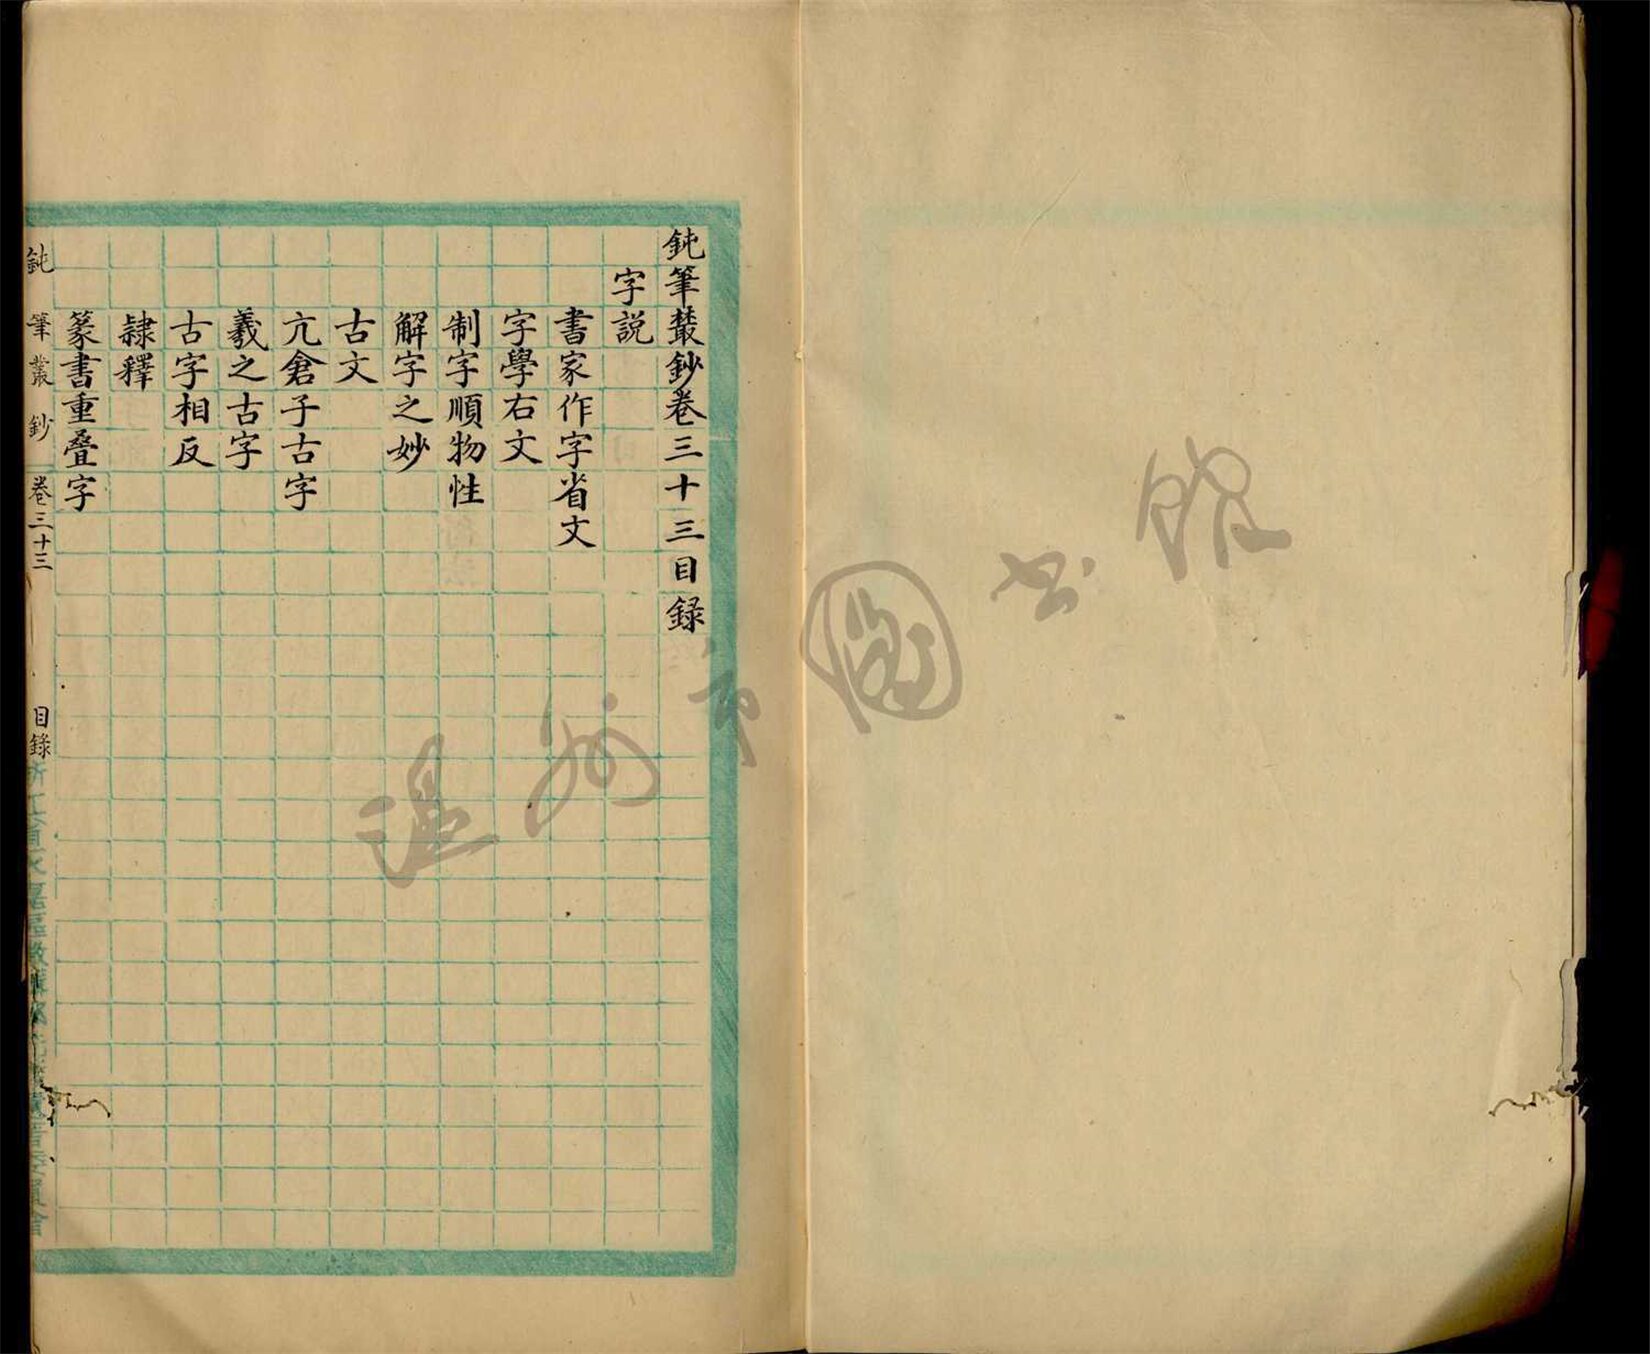 鈍筆叢鈔卷三十三目録
字説
書家作字省文
字學右文
制字順物性
解字之妙
古文
亢倉子古字
羲之古字
古字相反
隷釋
篆書重疊字
鈍筆叢鈔 卷三十三 目錄
温州市圖书館